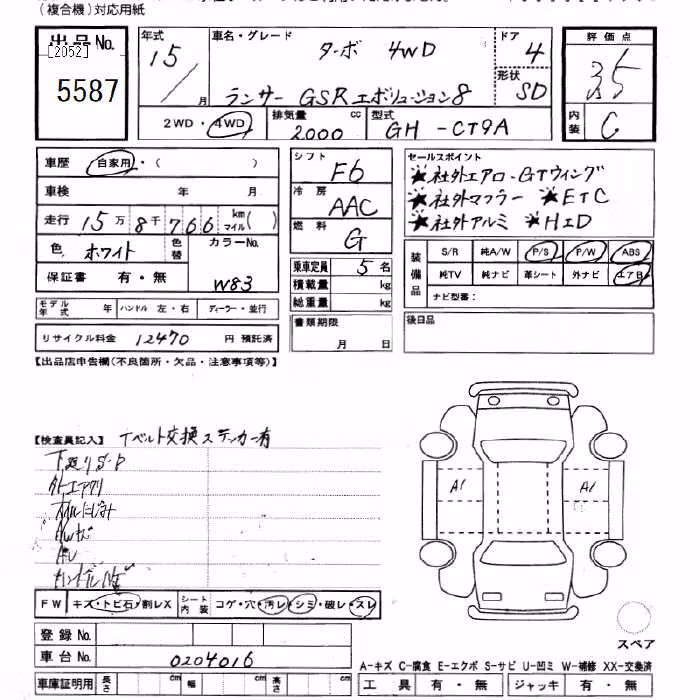 (複合機)対応用紙
出品No.
[2052]
5587
年式 15 / 月
車名・グレード ターボ 4WD
ランサー GSR エボリューション8
ドア 4
形状 SD
評価点 3.5
内装 C
2WD・4WD
排気量 2000 cc
型式 GH-CT9A
車歴 自家用・( )
車検 年 月
走行 15万8千766 km マイル( )
色 ホワイト 色替 カラーNo. W83
保証書 有・無
モデル年式 年 ハンドル 左・右 ディーラー・並行
リサイクル料金 12470 円 預託済
シフト F6
冷房 AAC
燃料 G
乗車定員 5名
積載量 kg
総重量 kg
書類期限 月 日
セールスポイント
★社外エアロ・GTウィング
★社外マフラー ★ETC
★社外アルミ ★HID
装備品 S/R 純A/W P/S P/W ABS
純TV 純ナビ 革シート 外ナビ エアB
ナビ型番:
後日品
【出品店申告欄(不良箇所・欠品・注意事項等)】
【検査員記入】 Tベルト交換 ステッカー有
オイルにじみ
A1 A1
FW キズ・トビ石・割レX シート内装 コゲ・穴・汚レ・シミ・破レ・スレ
登録No.
車台No. 0204016
車庫証明用 長さ cm 幅 cm 高さ cm
スペア
A-キズ C-腐食 E-エクボ S-サビ U-凹ミ W-補修 XX-交換済
工具 有・無 ジャッキ 有・無